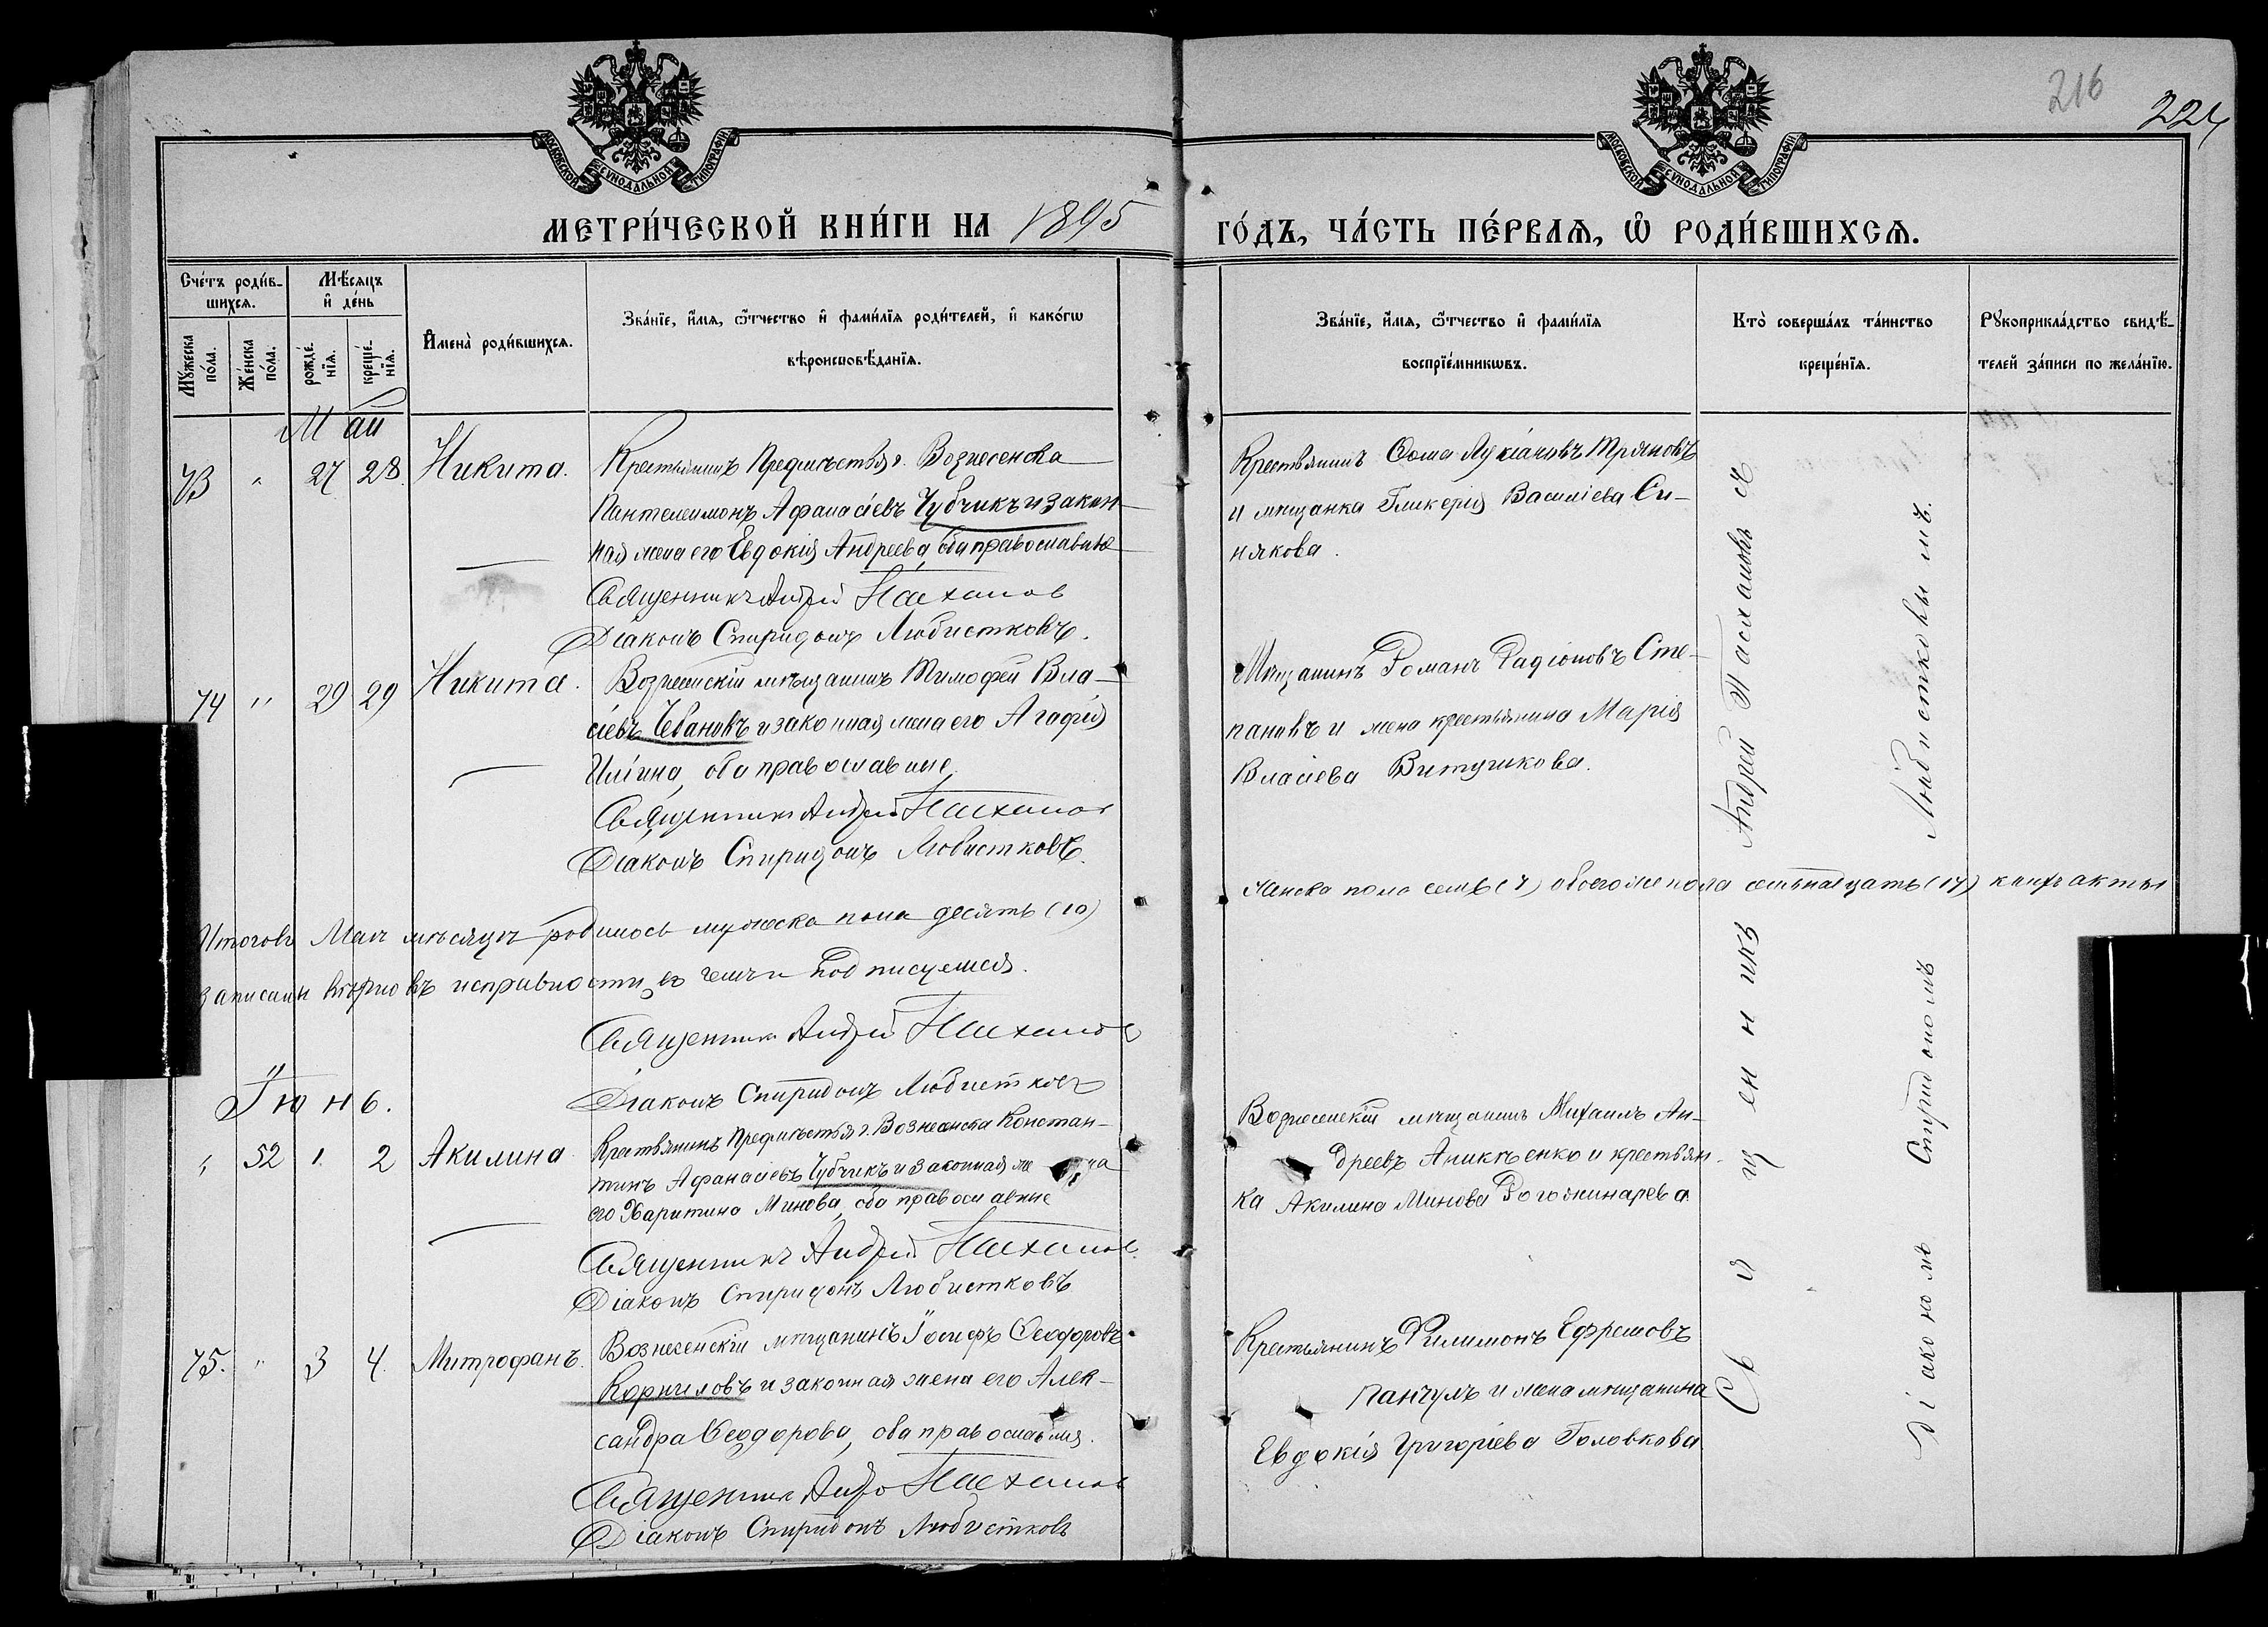 216
224
МОСКОВСКОЙ СѴНОДАЛЬНОЙ ТИПОГРАФІИ
МОСКОВСКОЙ СѴНОДАЛЬНОЙ ТИПОГРАФІИ
МЕТРИ́ЧЕСКОЙ КНИ́ГИ НА 1895 ГО́ДЪ, ЧА́СТЬ ПЕ́РВАѦ, Ѡ҆ РОДИ́ВШИХСѦ.
Сче́тъ роди́в-
шихсѧ.
Мѣ́сѧцъ
и҆ де́нь
Мꙋ́жеска
по́ла.
Же́нска
по́ла.
рожде́-
нїѧ.
креще́-
нїѧ.
И҆мена̀ роди́вшихсѧ.
Зва́нїе, и҆́мѧ, ѻ҆́тчество и҆ фами́лїѧ роди́телей, и҆ како́гѡ
вѣроисповѣ́данїѧ.
Зва́нїе, и҆́мѧ, ѻ҆́тчество и҆ фами́лїѧ
воспрїе́мникѡвъ.
Кто̀ соверша́лъ та́инство
креще́нїѧ.
Рꙋкоприкла́дство свидѣ́-
телей за́писи по жела́нїю.
Май
73 " 27 28 Никита. Крестьянинъ Предмѣстья г. Вознесенска
Пантелеимонъ Афанасіевъ Чубчикъ и закон-
ная жена его Евдокія Андреева, оба православные
Священникъ Андрей Пасхалов
Діаконъ Спиридонъ Любистковъ.
Крестьянинъ Ѳома Лукіановъ Тряновъ
и мѣщанка Гликерія Василіева Си-
някова.
74 " 29 29 Никита. Вознесенскій мѣщанинъ Тимофей Вла-
сіевъ Чебановъ и законная жена его Агафія
Иліина, оба православные
Священникъ Андрей Пасхалов
Діаконъ Спиридонъ Любистковъ.
Мѣщанинъ Романъ Радіоновъ Сте-
пановъ и жена крестьянина Марія
Власіева Витушкова.
Итого въ Маѣ мѣсяцѣ родилось мужеска пола десять (10)
женска пола семь (7) обоего же пола семьнадцать (17) каихъ акты
записаны вѣрно въ исправности, въ чемъ и подписуемся.
Священникъ Андрей Пасхалов
Діаконъ Спиридонъ Любистковъ
Іюнь.
" 52 1 2 Акилина Крестьянинъ Предмѣстья г. Вознесенска Констан-
тинъ Афанасіевъ Чубчикъ и законная жена
его Харитина Минова, оба православные
Священникъ Андрей Пасхалов
Діаконъ Спиридонъ Любистковъ
Вознесенскій мѣщанинъ Михаилъ Ан-
дреевъ Аникѣенко и крестьян-
ка Акилина Минова Рогожинарева
75. " 3 4. Митрофанъ. Вознесенскій мѣщанинъ Іосифъ Ѳеодоровъ
Корниловъ и законная жена его Алек-
сандра Ѳеодорова, оба православныя.
Священникъ Андрей Пасхалов
Діаконъ Спиридонъ Любистковъ
Крестьянинъ Филимонъ Ефремовъ
Панчулъ и жена мѣщанина
Евдокія Григоріева Головкова
Священникъ Андрей Пасхаловъ съ
Діакономъ Спиридономъ Любистковымъ.